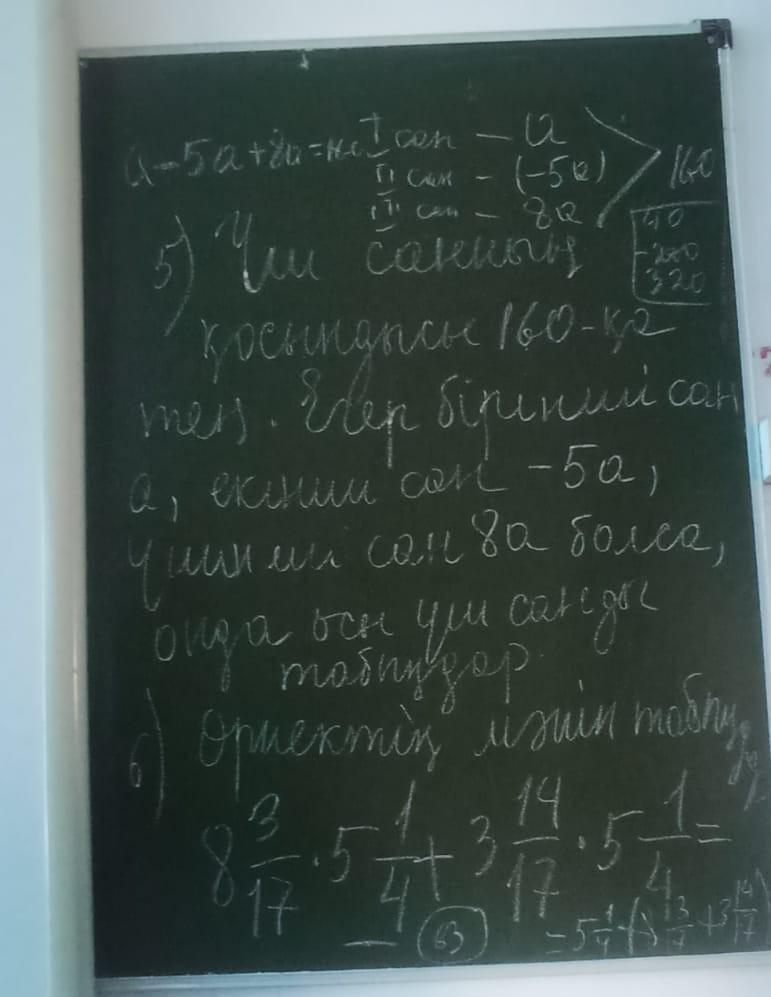 a-5a+8a=160 I сан - a
II сан - (-5a)
III сан - 8a
160
40
-200
320
5) Үш санның
қосындысы 160-қа
тең. Егер бірінші сан
a, екінші сан -5a,
үшінші сан 8a болса,
онда осы үш санды
табыңдар.
6) Өрнектің мәнін табыңдар
8 3/17 · 5 1/4 + 3 14/17 · 5 1/4 =
= 5 1/4
63